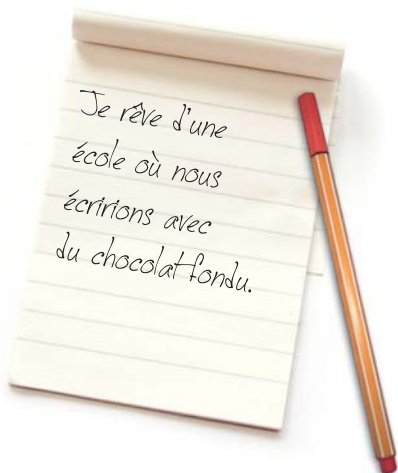 Je rêve d'une
école où nous
écririons avec
du chocolat fondu.